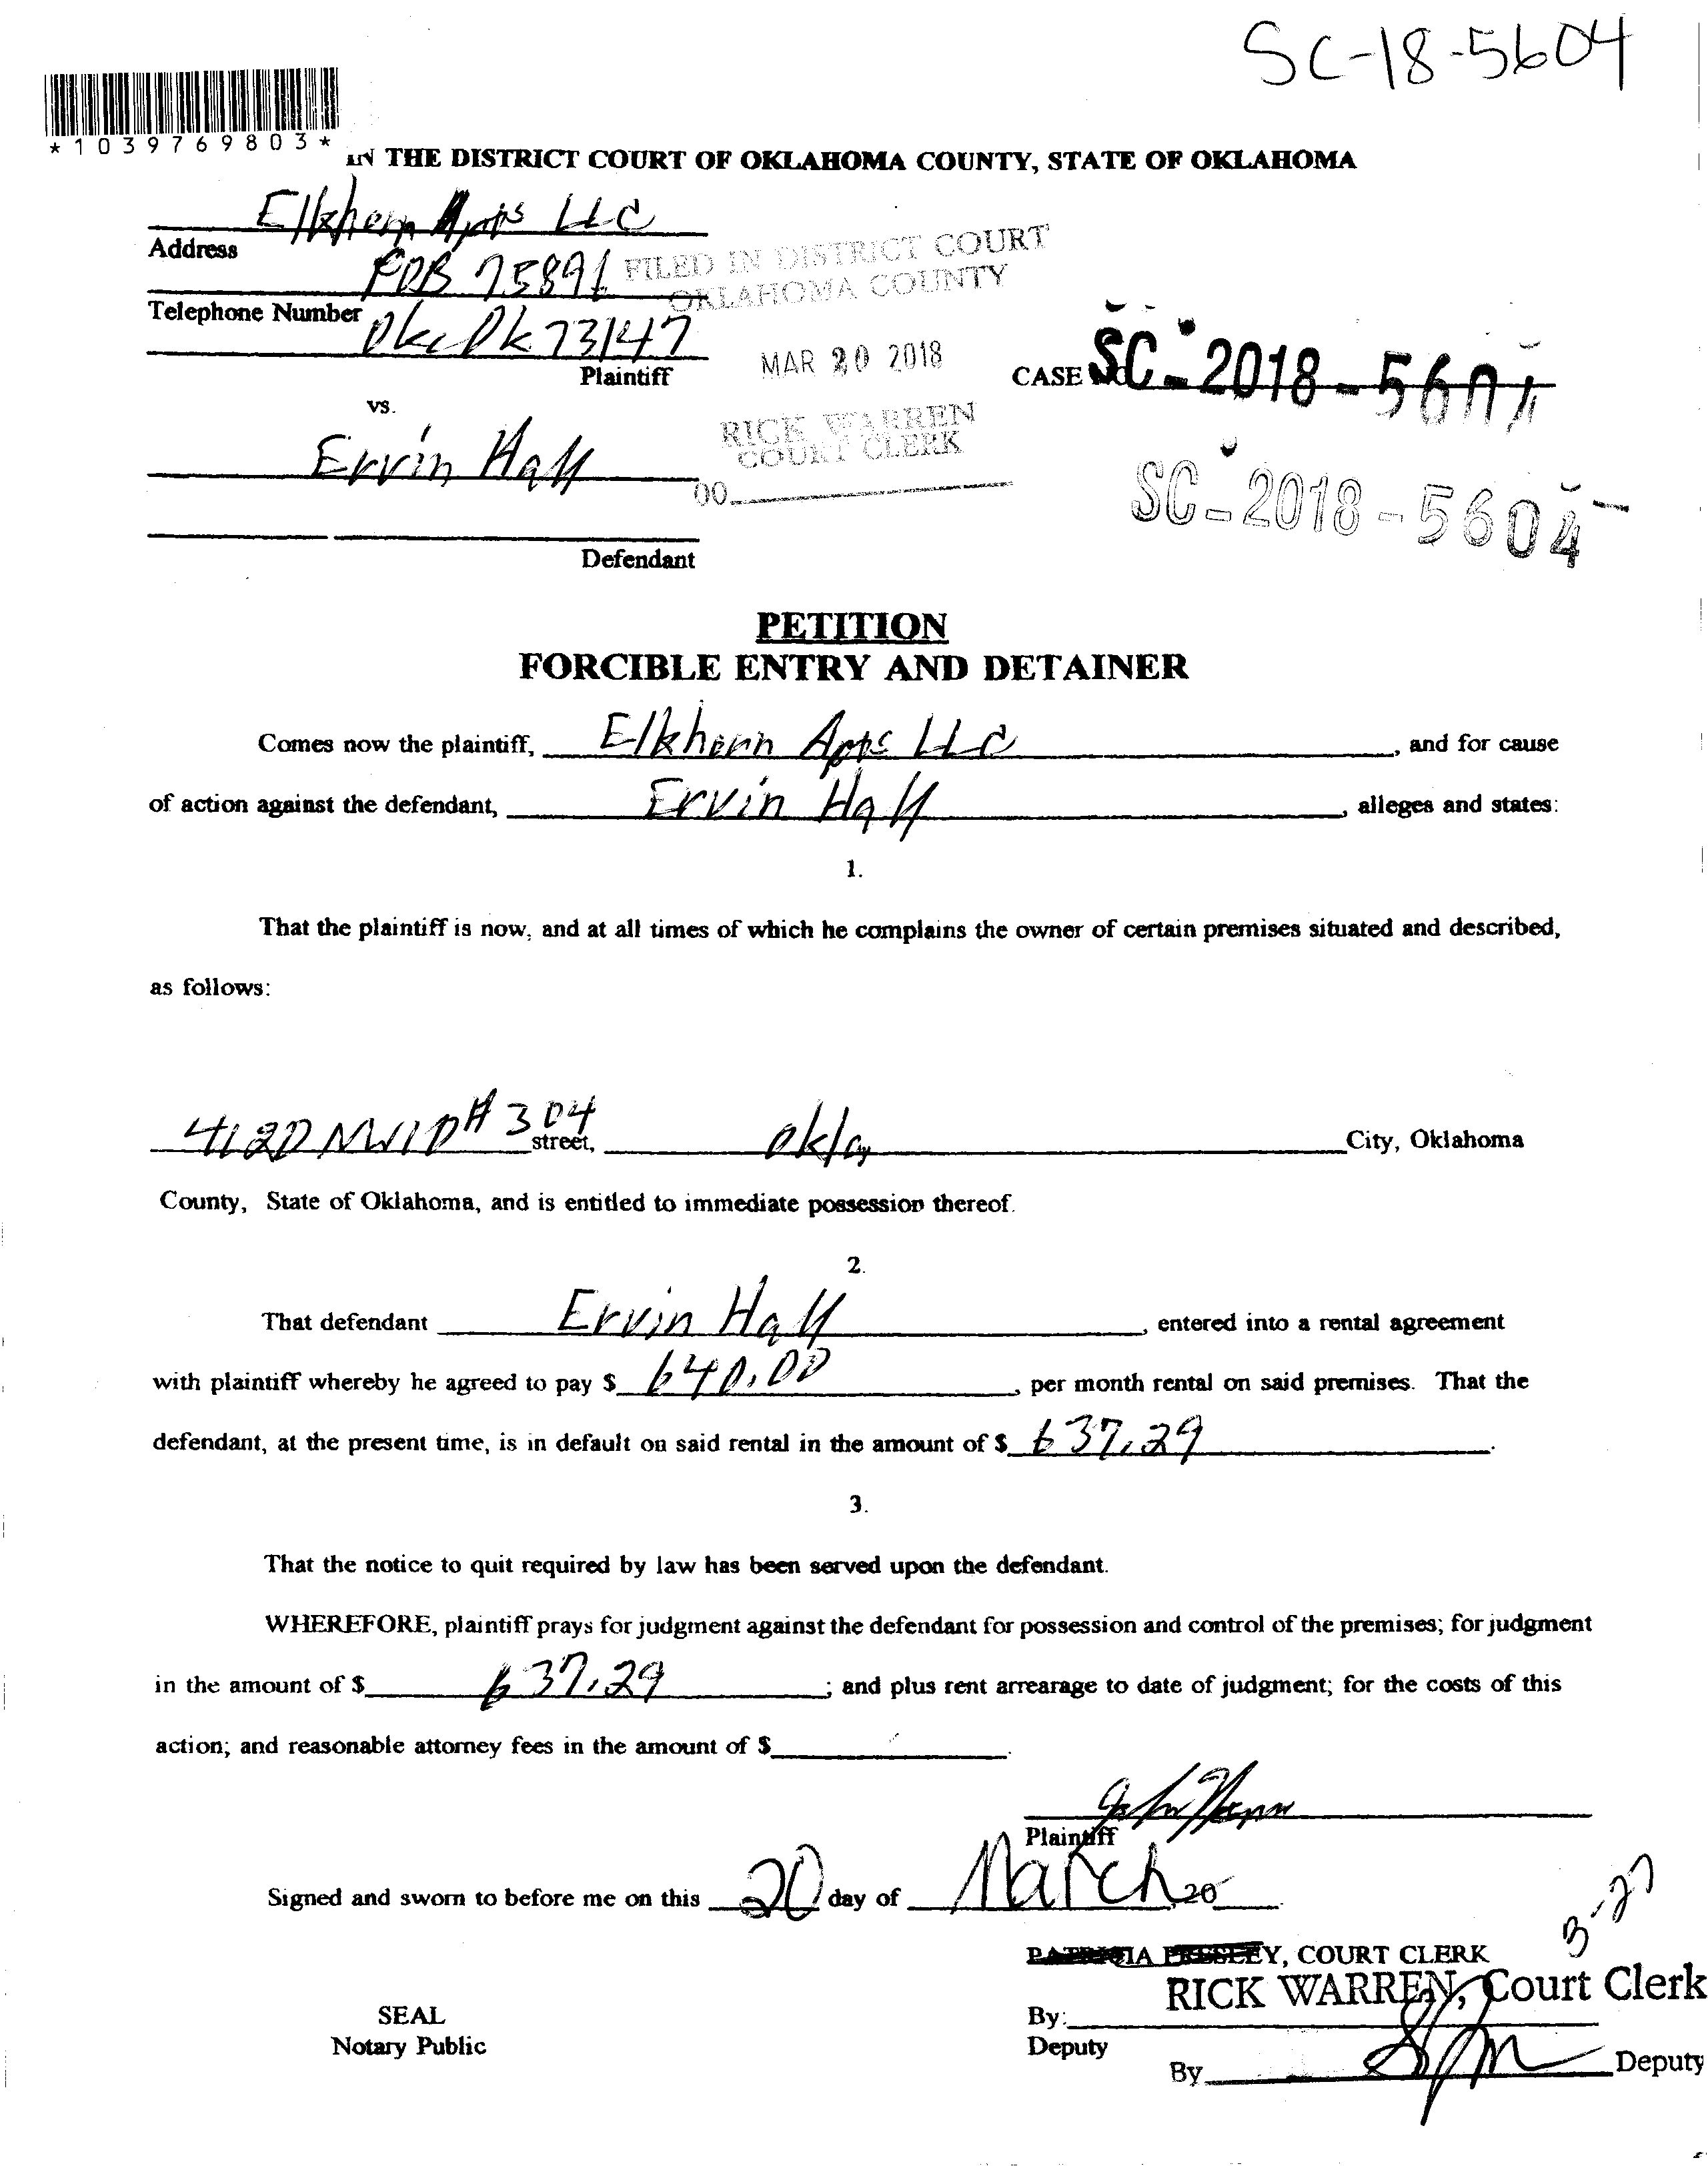 SC-18-5604
*1039769803*
IN THE DISTRICT COURT OF OKLAHOMA COUNTY, STATE OF OKLAHOMA
Elkhorn Apts LLC
Address
POB 75891
FILED IN DISTRICT COURT
OKLAHOMA COUNTY
Telephone Number
Okc Ok 73147
Plaintiff
MAR 20 2018
CASE NO. SC-2018-5604
vs.
RICK WARREN
COURT CLERK
Ervin Hall
00
SC-2018-5604
Defendant
PETITION
FORCIBLE ENTRY AND DETAINER
Comes now the plaintiff, Elkhorn Apts LLC, and for cause
of action against the defendant, Ervin Hall, alleges and states:
1.
That the plaintiff is now, and at all times of which he complains the owner of certain premises situated and described,
as follows:
4120 NW10 #304 street, Okla City, Oklahoma
County, State of Oklahoma, and is entitled to immediate possession thereof.
2.
That defendant Ervin Hall, entered into a rental agreement
with plaintiff whereby he agreed to pay $ 640.00, per month rental on said premises. That the
defendant, at the present time, is in default on said rental in the amount of $ 637.29.
3.
That the notice to quit required by law has been served upon the defendant.
WHEREFORE, plaintiff prays for judgment against the defendant for possession and control of the premises; for judgment
in the amount of $ 637.29; and plus rent arrearage to date of judgment; for the costs of this
action; and reasonable attorney fees in the amount of $.
Plaintiff
Signed and sworn to before me on this 20 day of March, 20
3-27
PATRICIA PRESLEY, COURT CLERK
RICK WARREN, Court Clerk
SEAL
By:
Notary Public
Deputy
By Deputy